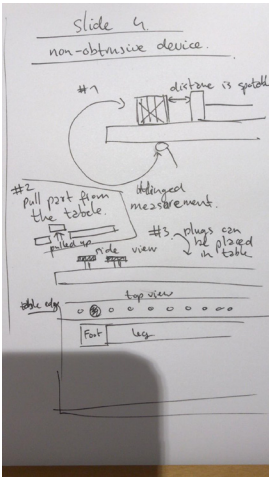 slide 4
non-obtrusive device.
#1
distane is spotable
hinged
measurement.
#2
pull part from
the table.
pulled up
side view
#3. plugs can
be placed
in table
top view
table edge
Foot
leg